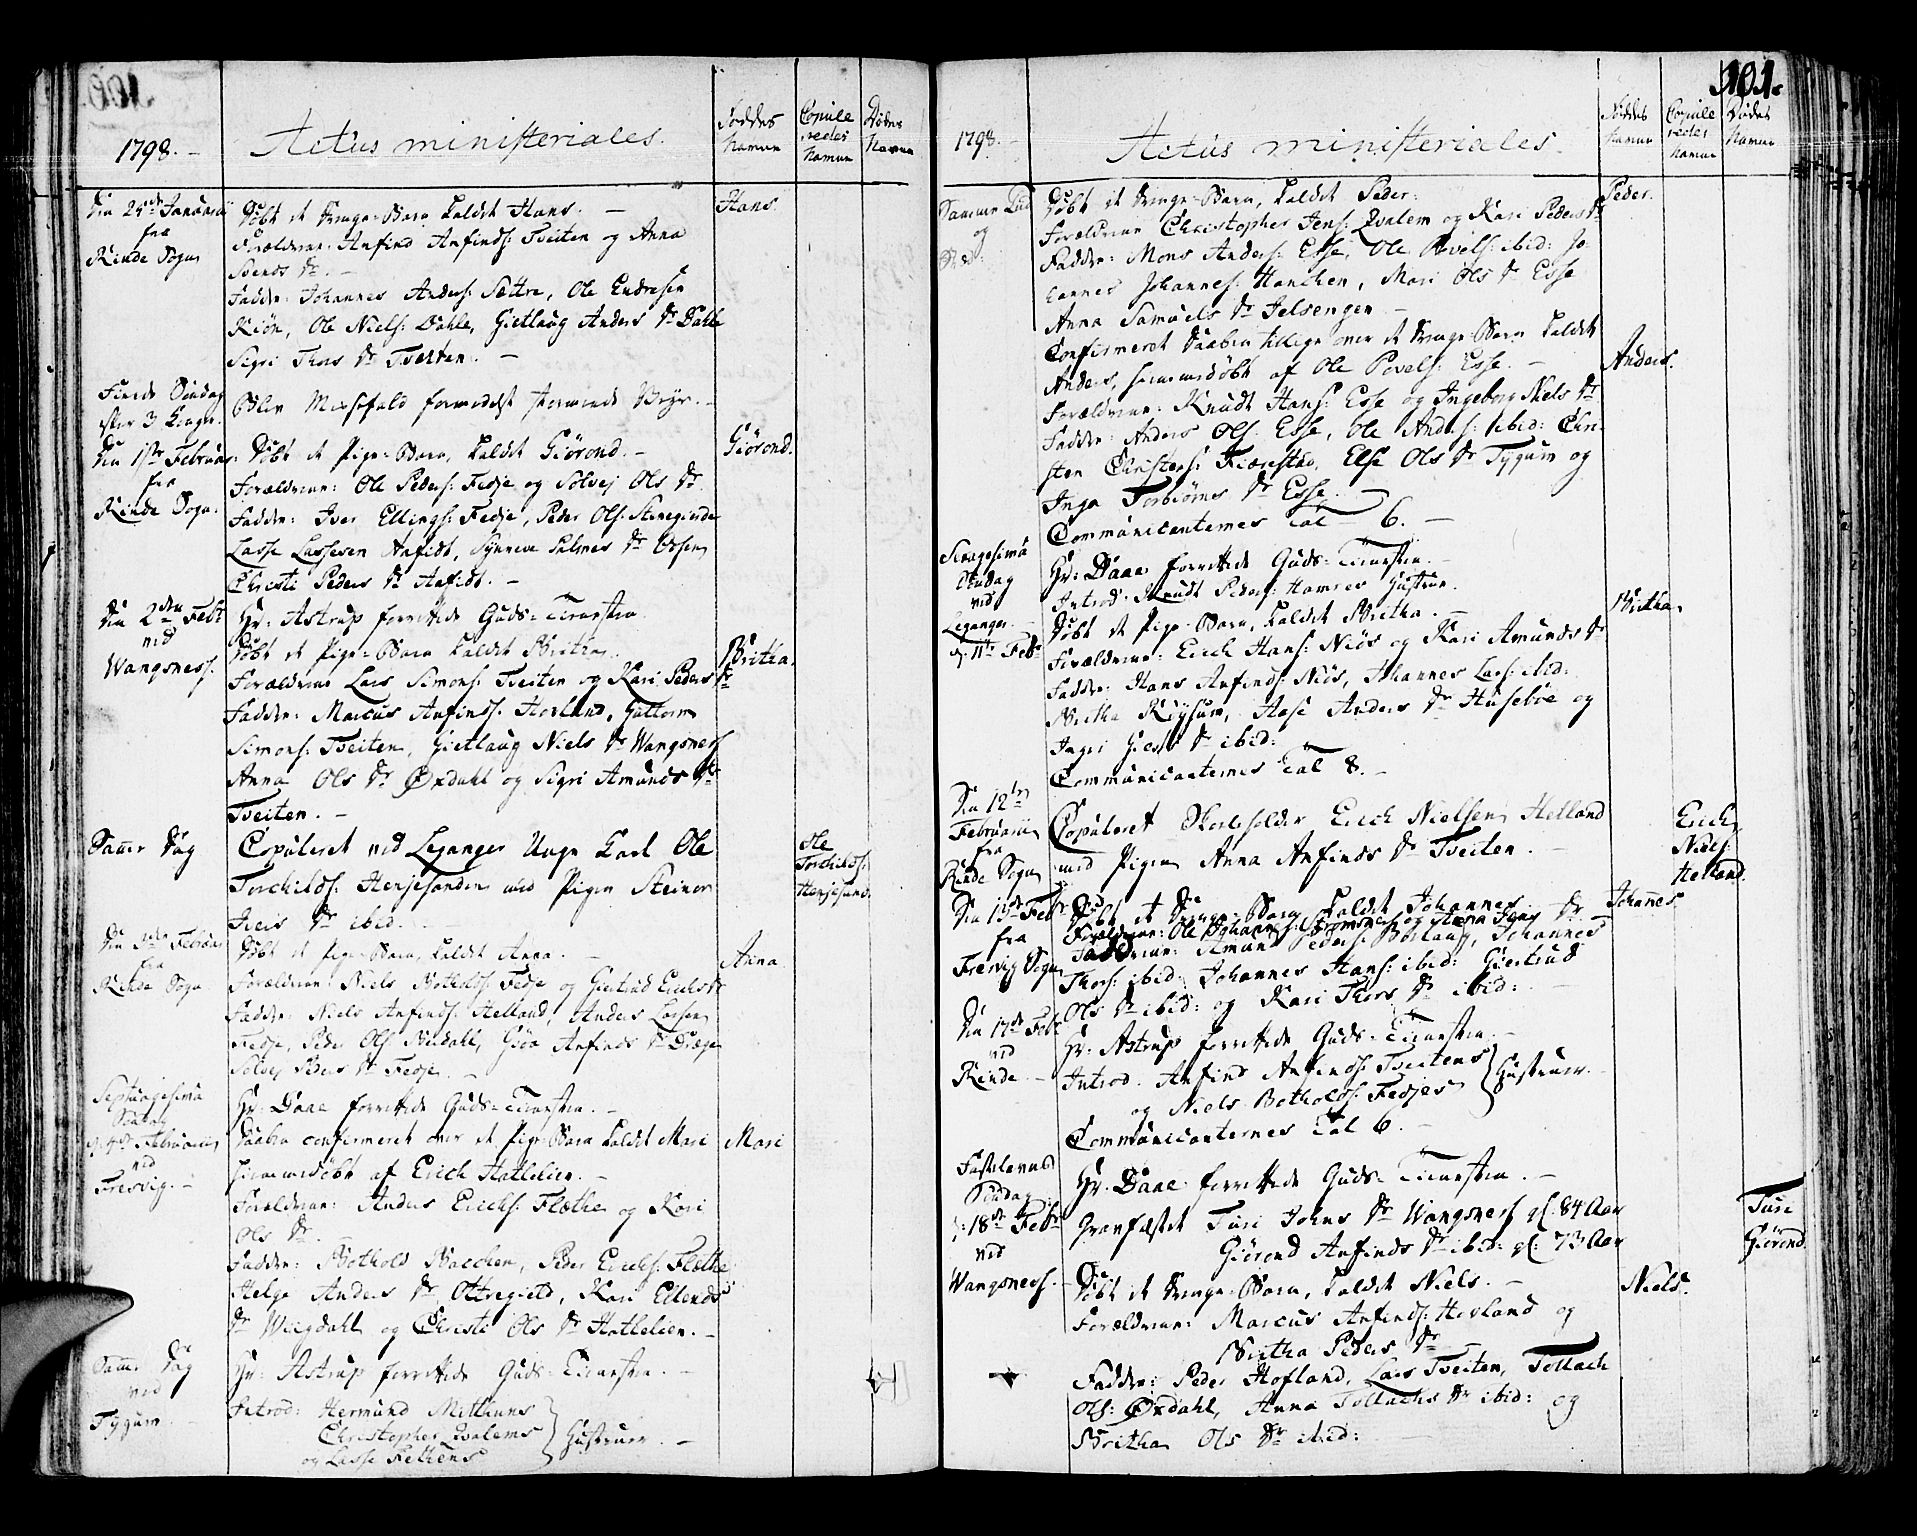 101.
1798.
Actus ministeriales.
Føddes Navne
Copule redes Navne
Dødes Navne
Den 25de Januarii fra Rinde Sogn
Døbt et Drenge-Barn kaldet Hans.
Hans
Forældrene: Anfind Anfinds: Tveiten og Anna
Svends Dr.
Fadder: Johannes Anders: Sættre, Ole Endresen
Kiøn, Ole Niels: Dahle, Giertlaug Anders Dr Dahle
Sigri Thors Dr Tveiten.
Søndag efter 3 Konger.
Blev Messefald formedelst stormende Veyr.
Den 1ste Februar: fra Rinde Sogn.
Døbt et Pige-Barn, kaldet Giørond.
Giørond.
Forældrene: Ole Peders: Fedje og Solvej Ols Dr.
Fadder: Iver Ellings: Fedje, Peder Ols: Stenegierde
Lasse Lassesen Anfidt, Synneve Palmes Dr
Christi Peders Dr Anfidt.
Den 2den Febr ved Wangsness.
Hr: Astrup forrettede Guds-Tienesten.
Døbt et Pige-Barn kaldet Britha.
Britha.
Forældrene Lars Simons: Tveiten og Kari Peders Dr
Fadder: Marcus Anfinds: Hovland, Guttorm
Simons: Tveiten, Giertlaug Niels Dr Wangsness
Anna Ols Dr Øxdahl og Sigri Amunds Dr
Tveiten.
Samme Dag
Copuleret ved Leganger Unge Karl Ole
Torchilds: Henjesanden med Pigen Steinor
Ole Torchilds: Henjesand.
Iveis Dr ibid.
Den 3die Februar fra Rinde Sogn
Døbt et Pige-Barn, kaldet Anna.
Anna
Forældrene: Niels Botholds: Fedje og Giertrud Erichs Dr
Fadder: Niels Anfinds: Helland, Anders Larsen
Fedje, Peder Ols: Nædahl, Giøa Anfinds Dr Dræge
Solvej Peders Dr Fedje.
Septuagesima Søndag d: 4de Februarii ved Fresvig.
Hr: Daae forrettede Guds-Tienesten.
Daaben confirmeret over et Pige-Barn kaldet Mari
Mari
hiemmedøbt af Erich Hatlelien.
Forældrene: Anders Erichs: Flæthe og Kari
Ols Dr.
Fadder: Bothold Bacchen, Peder Erichs: Flæthe
Helge Anders Dr Ottregield, Kari Eilends
Dr Wiigdahl og Christi Ols Dr Hatlelien.
Samme Dag ved Tygum.
Hr: Astrup forrettede Guds-Tienesten.
Introd: Hermund Mithuns
Christopher Qvalems
og Lasse Fetiens
Hustruer.
1798.
Actus ministeriales.
Føddes Navne
Copule redes Navne
Dødes Navne
Samme Dag og Sted:
Døbt et Drenge-Barn, kaldet Peder.
Peder.
Forældrene Christopher Jens: Qvalem og Kari Peders Dr
Fadder: Mons Anders: Esse, Ole Povels: ibid: Jo-
hannes Johannes: Hanchen, Mari Ols Dr Esse
Anna Samuels Dr Jelsengen
Confirmeret Daaben tillige over et Drenge-Barn kaldet
Anders, hiemmedøbt af Ole Povels: Esse.
Anders.
Forældrene: Knudt Hans: Esse og Ingeborg Niels Dr
Fadder: Anders Ols: Esse, Ole Anders: ibid: Chri-
sten Christens: Fiærestad, Else Ols Dr Tygum og
Inga Torbiørns Dr Esse.
Communicanternes Tal 6.
Sexagesima Søndag ved Leganger d: 11te Febr
Hr: Daae forrettede Guds-Tienesten.
Introd: Knudt Peders: Hamres Hustrue.
Døbt et Pige-Barn, kaldet Britha.
Britha
Forældrene: Erich Hans: Niøs og Kari Amunds Dr
Fadder: Hans Anfinds: Niøs, Johannes Lars: ibid:
Britha Rysum, Aase Anders Dr Husebøe og
Ingri Giers Dr ibid:
Communicanternes Tal 8.
Den 12te Februarii fra Rinde Sogn
Copuleret Skoleholder Erich Nielsen Helland
med Pigen Anna Anfinds Dr Tveiten.
Erich Niels: Helland.
Den 13de Febr fra Fresvig Sogn
Døbt et Drenge-Barn kaldet Johannes.
Johannes.
Forældrene: Ole Johannes: og Anna Dr
Fadderne: Amund Peders: Borlaug, Johannes
Thors: ibid: Johannes Hans: ibid: Giertrud
Ols Dr ibid: og Kari Thors Dr ibid:
Den 17de Febr ved Rinde
Hr: Astrup forrettede Guds-Tienesten.
Introd. Anfind Anfinds: Tveitens
og Niels Botholds: Fedjes
Hustruer.
Communicanternes Tal 6.
Fastelavns Søndag d: 18de Febr ved Wangsness.
Hr. Daae forrettede Guds-Tienesten.
Gravfæstet Turi Johns Dr Wangsness gl: 84 Aar
Turi
Giørond Anfinds Dr ibid: gl: 73 Aar
Giørond.
Døbt et Drenge-Barn, kaldet Niels.
Niels.
Forældrene: Marcus Anfinds: Hovland og
Britha Peders Dr
Fadder: Peder Hofland, Lars Tveiten, Tollach
Ols: Øxdahl, Anna Tollachs Dr ibid: og
Britha Ols Dr ibid: